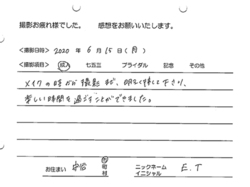 撮影お疲れ様でした。 感想をお願いいたします。
<撮影日時> 2020 年 6 月 15 日 (月)
<撮影項目> 成人 七五三 ブライダル 記念 その他
メイクの時から撮影まで、明るく接して下さり、
楽しい時間を過ごすことができました。
お住まい 市 町 村 ニックネーム イニシャル E.T